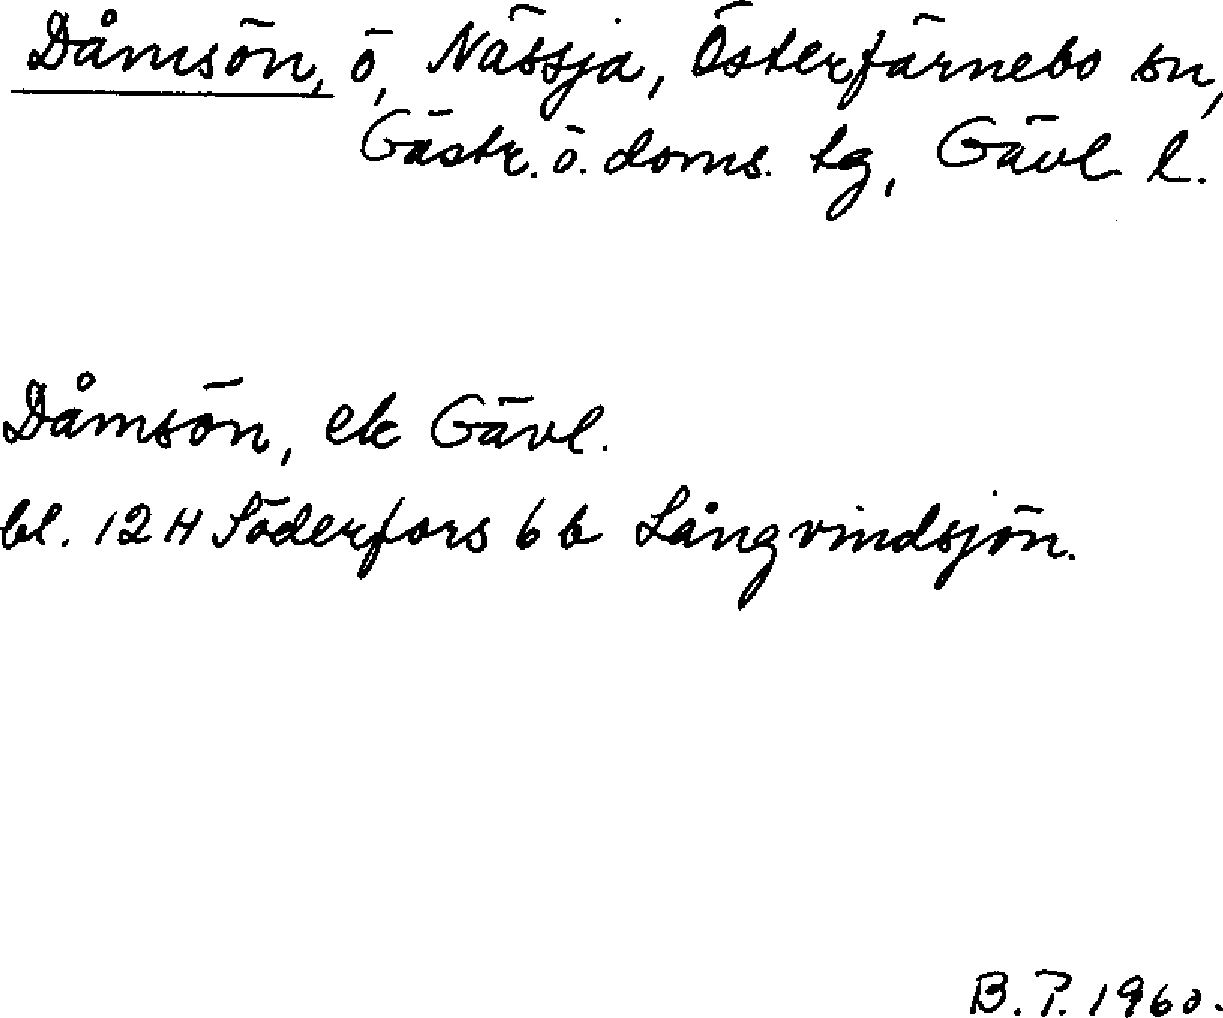 Dåmsön, ö, Nässja, Österfärnebo sn,
Gästr. ö. doms. tg, Gävl l.
Dåmsön, ek Gävl.
bl. 12 H Söderfors 6 b Långvindsjön.
B. P. 1960.